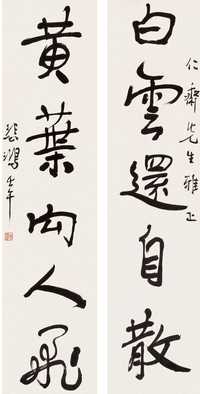 仁齋先生雅正
白雲還自散
黃葉向人飛
悲鴻壬午